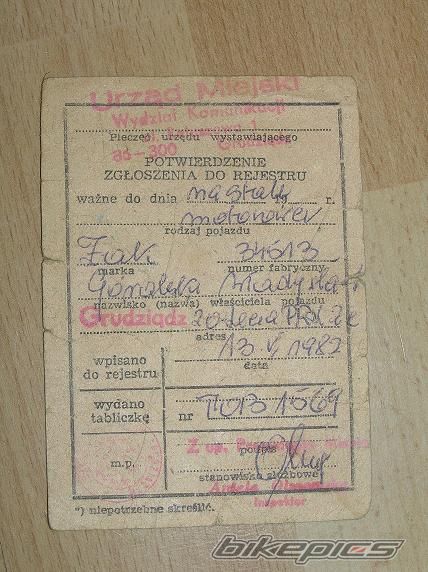 Urząd Miejski
Wydział Komunikacji
Pieczęć urzędu wystawiającego
86-300 Grudziądz
POTWIERDZENIE
ZGŁOSZENIA DO REJESTRU
ważne do dnia na stałe r.
motorower
rodzaj pojazdu
Żak 34513
marka numer fabryczny
Władysław
nazwisko (nazwa) właściciela pojazdu
Grudziądz
adres
wpisano
do rejestru
data
wydano
tabliczkę
nr TOB 1569
Z up.
podpis
m.p.
stanowisko służbowe
Inspektor
*) niepotrzebne skreślić.
bikepics